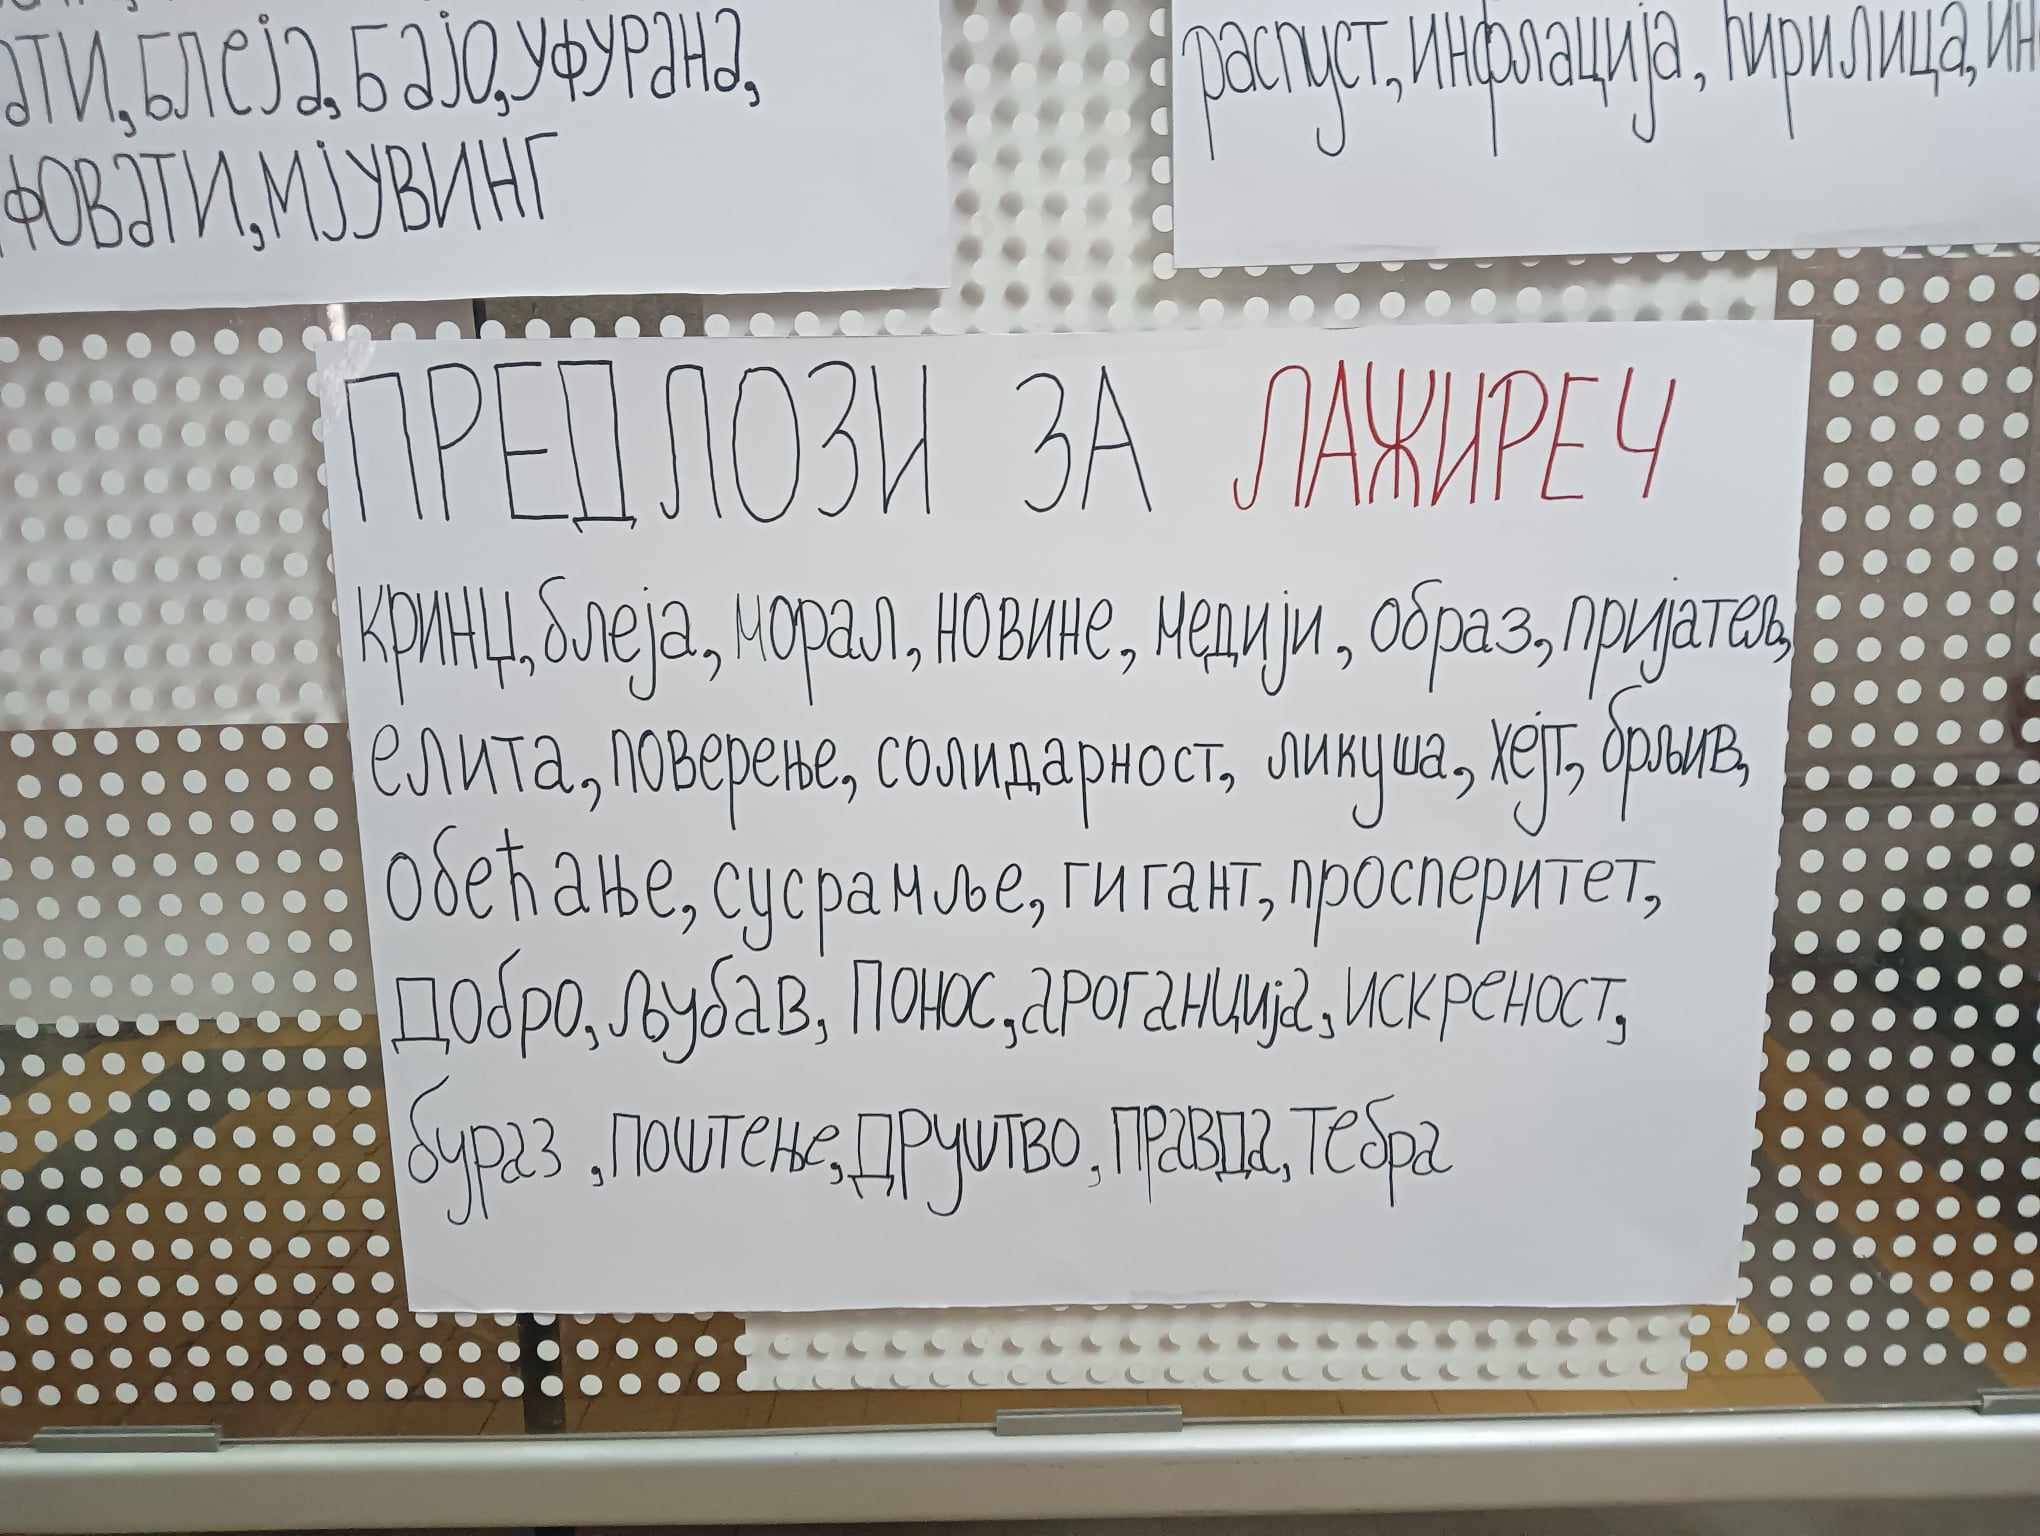 ати, блеја, бајо, уфурана,
фовати, мјувинг
распуст, инфлација, ћирилица, ин
ПРЕДЛОЗИ ЗА ЛАЖИРЕЧ
кринџ, блеја, морал, новине, медији, образ, пријатељ,
елита, поверење, солидарност, ликуша, хејт, брљив,
обећање, сусрамље, гигант, просперитет,
добро, љубав, понос, ароганција, искреност,
бураз, поштење, друштво, правда, тебра